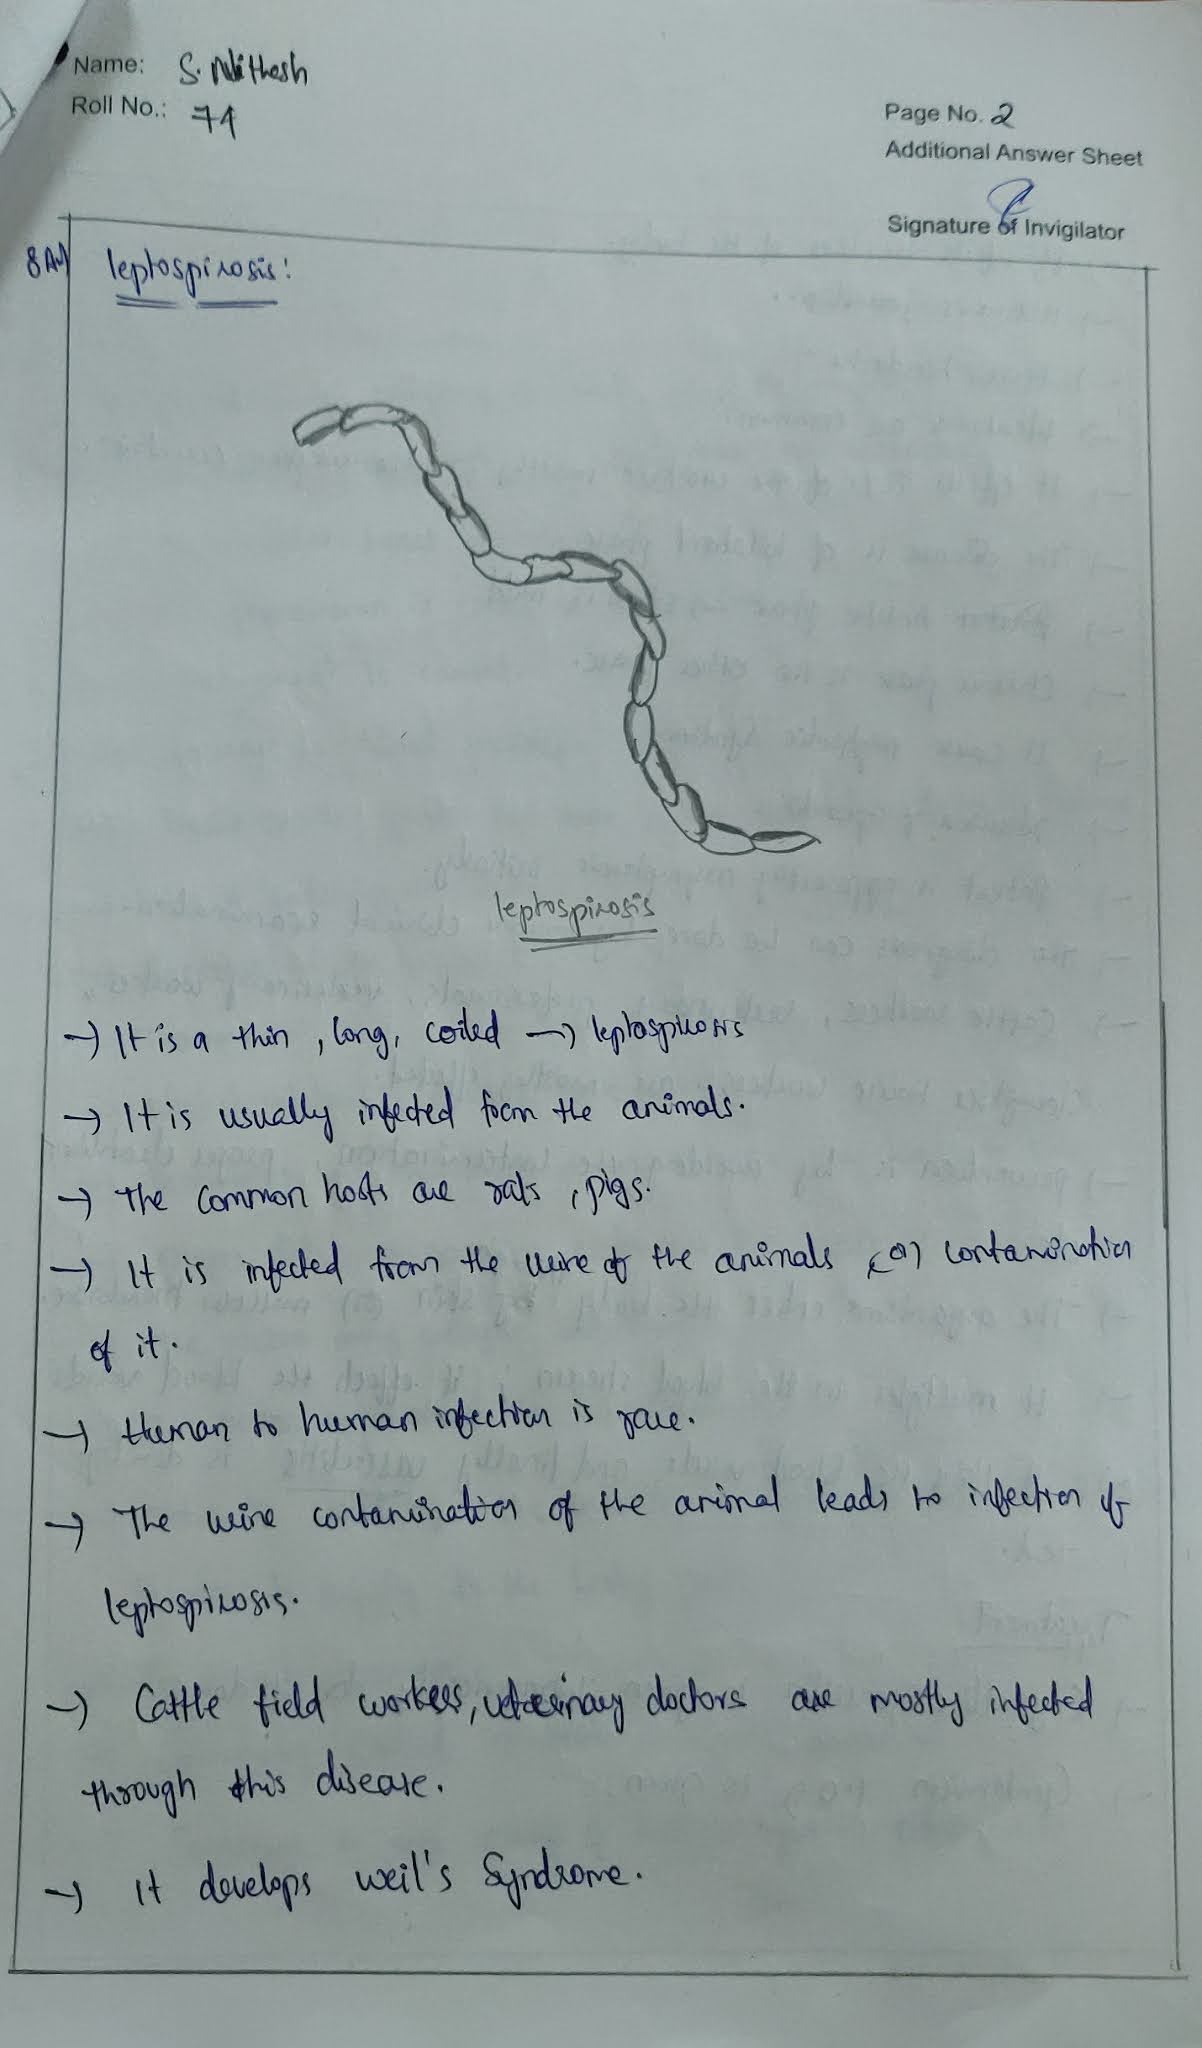 Name: S. Nithesh
Roll No.: 74
Page No. 2
Additional Answer Sheet
Signature of Invigilator
8 Ans) leptospirosis:
leptospirosis
→ It is a thin, long, coiled → leptospirosis
→ It is usually infected from the animals.
→ The common hosts are rats, pigs.
→ It is infected from the urine of the animals (or) contamination
of it.
→ Human to human infection is rare.
→ The urine contamination of the animal leads to infection of
leptospirosis.
→ Cattle field workers, veterinary doctors are mostly infected
through this disease.
→ it develops weil's Syndrome.